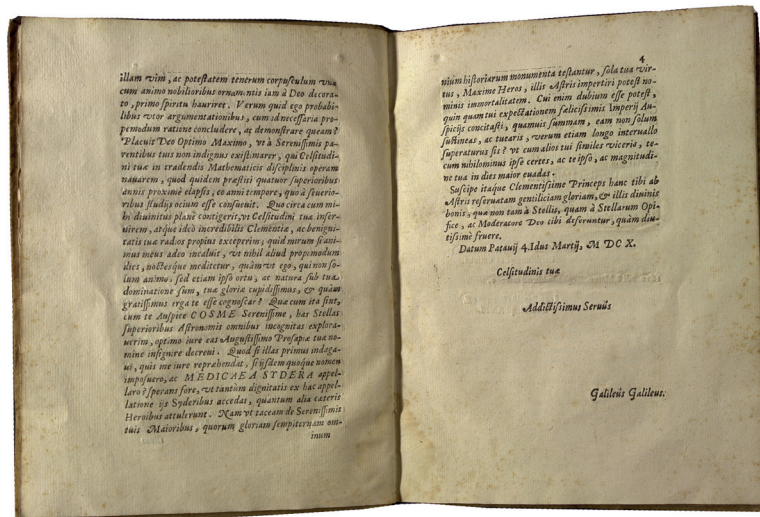 illam vim, ac potestatem tenerum corpusculum vnà
cum animo nobilioribus ornamentis iam à Deo decora-
to, primo spiritu hauriret. Verum quid ego probabi-
libus vtor argumentationibus, cum id necessaria pro-
pemodum ratione concludere, ac demonstrare queam?
Placuit Deo Optimo Maximo, vt à Serenissimis pa-
rentibus tuis non indignus existimarer, qui Celsitudi-
ni tuæ in tradendis Mathematicis disciplinis operam
nauarem, quod quidem præstiti quatuor superioribus
annis proximè elapsis, eo anni tempore, quo à seuerio-
ribus studijs ocium esse consueuit. Quo circa cum mi-
hi diuinitus planè contigerit, vt Celsitudini tuæ inser-
uirem, atque ideò incredibilis Clementiæ, ac benigni-
tatis tuæ radios propius exceperim; quid mirum si ani-
mus meus adeo incaluit, vt nihil aliud propemodum
dies, noctesque meditetur, quàm vt ego, qui non so-
lum animo, sed etiam ipso ortu, ac natura sub tua
dominatione sum, tuæ gloriæ cupidissimus, & quàm
gratissimus erga te esse cognoscar? Quæ cum ita sint,
cum te Auspice COSME Serenissime, has Stellas
superioribus Astronomis omnibus incognitas explora-
uerim, optimo iure eas Augustissimo Prosapiæ tuæ no-
mine insignire decreui. Quod si illas primus indaga-
ui, quis me iure repræhendat, si ijsdem quoque nomen
imposuero, ac MEDICÆA SYDERA appel-
laro? sperans fore, vt tantùm dignitatis ex hac appel-
latione ijs Syderibus accedat, quantum alia cæteris
Heroibus attulerunt. Nam vt taceam de Serenissimis
tuis Maioribus, quorum gloriam sempiternam om-
inum
4
nium historiarum monumenta testantur, sola tua vir-
tus, Maxime Heros, illis Astris impertiri potest no-
minis immortalitatem. Cui enim dubium esse potest,
quin quam tui expectationem fælicissimis Imperij Au-
spicijs concitasti, quamuis summam, eam non solum
sustineas, ac tuearis, verum etiam longo interuallo
superaturus sis? vt cum alios tui similes viceris, te-
cum nihilominus ipse certes, ac te ipso, ac magnitudi-
ne tua in dies maior euadas.
Suscipe itaque Clementissime Princeps hanc tibi ab
Astris reseruatam gentiliciam gloriam, & illis diuinis
bonis, quæ non tam à Stellis, quam à Stellarum Opi-
fice, ac Moderatore Deo tibi deferuntur, quàm diu-
tissimè fruere.
Datum Patauij 4. Idus Martij, M DC X.
Celsitudinis tuæ
Addictissimus Seruus
Galileus Galileus.